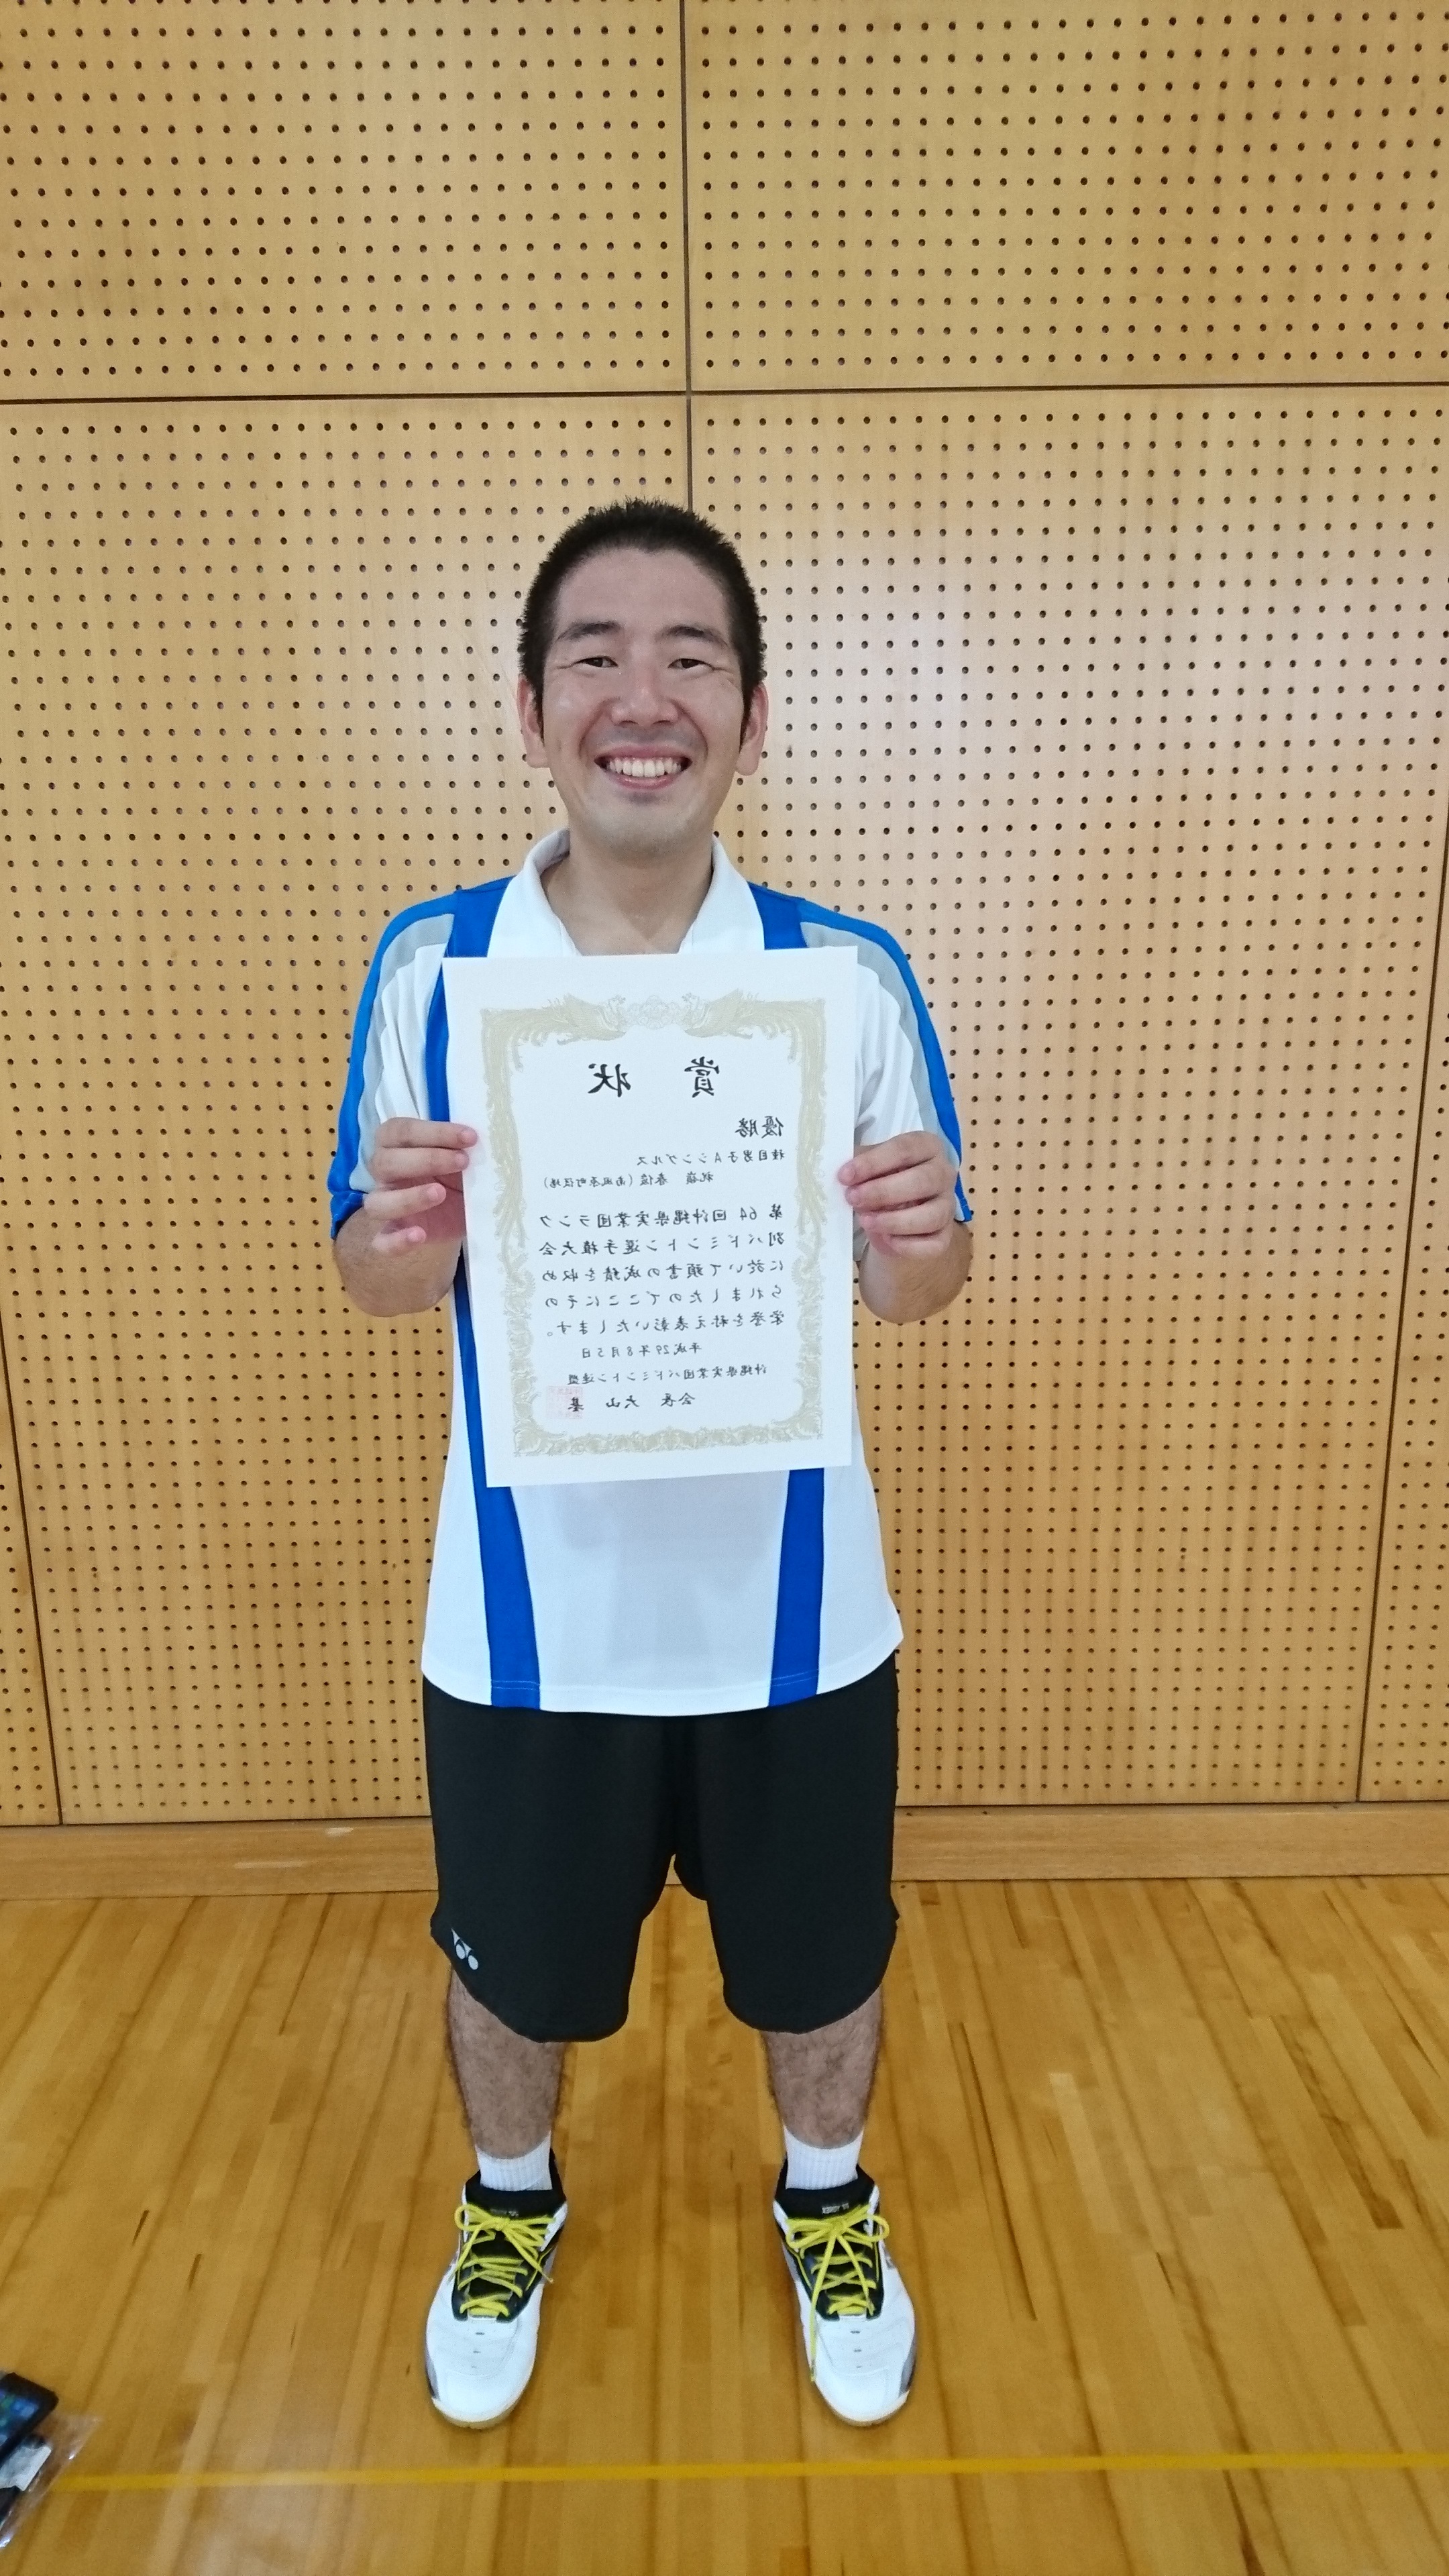 賞状
優勝
種目男子Aシングルス
祝嶺 春俊(南風原町役場)
第64回沖縄県実業団ランク
別バドミントン選手権大会
に於いて頭書の成績を収め
られましたのでここにその
栄誉を称え表彰いたします。
平成29年8月5日
沖縄県実業団バドミントン連盟
会長 大山 基